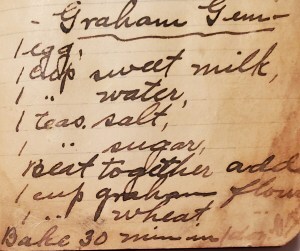 - Graham Gem -
1 egg,
1 cup sweet milk,
1 " water,
1 teas. salt,
1 " sugar,
Beat together add
1 cup graham flour
1 " wheat
Bake 30 min in